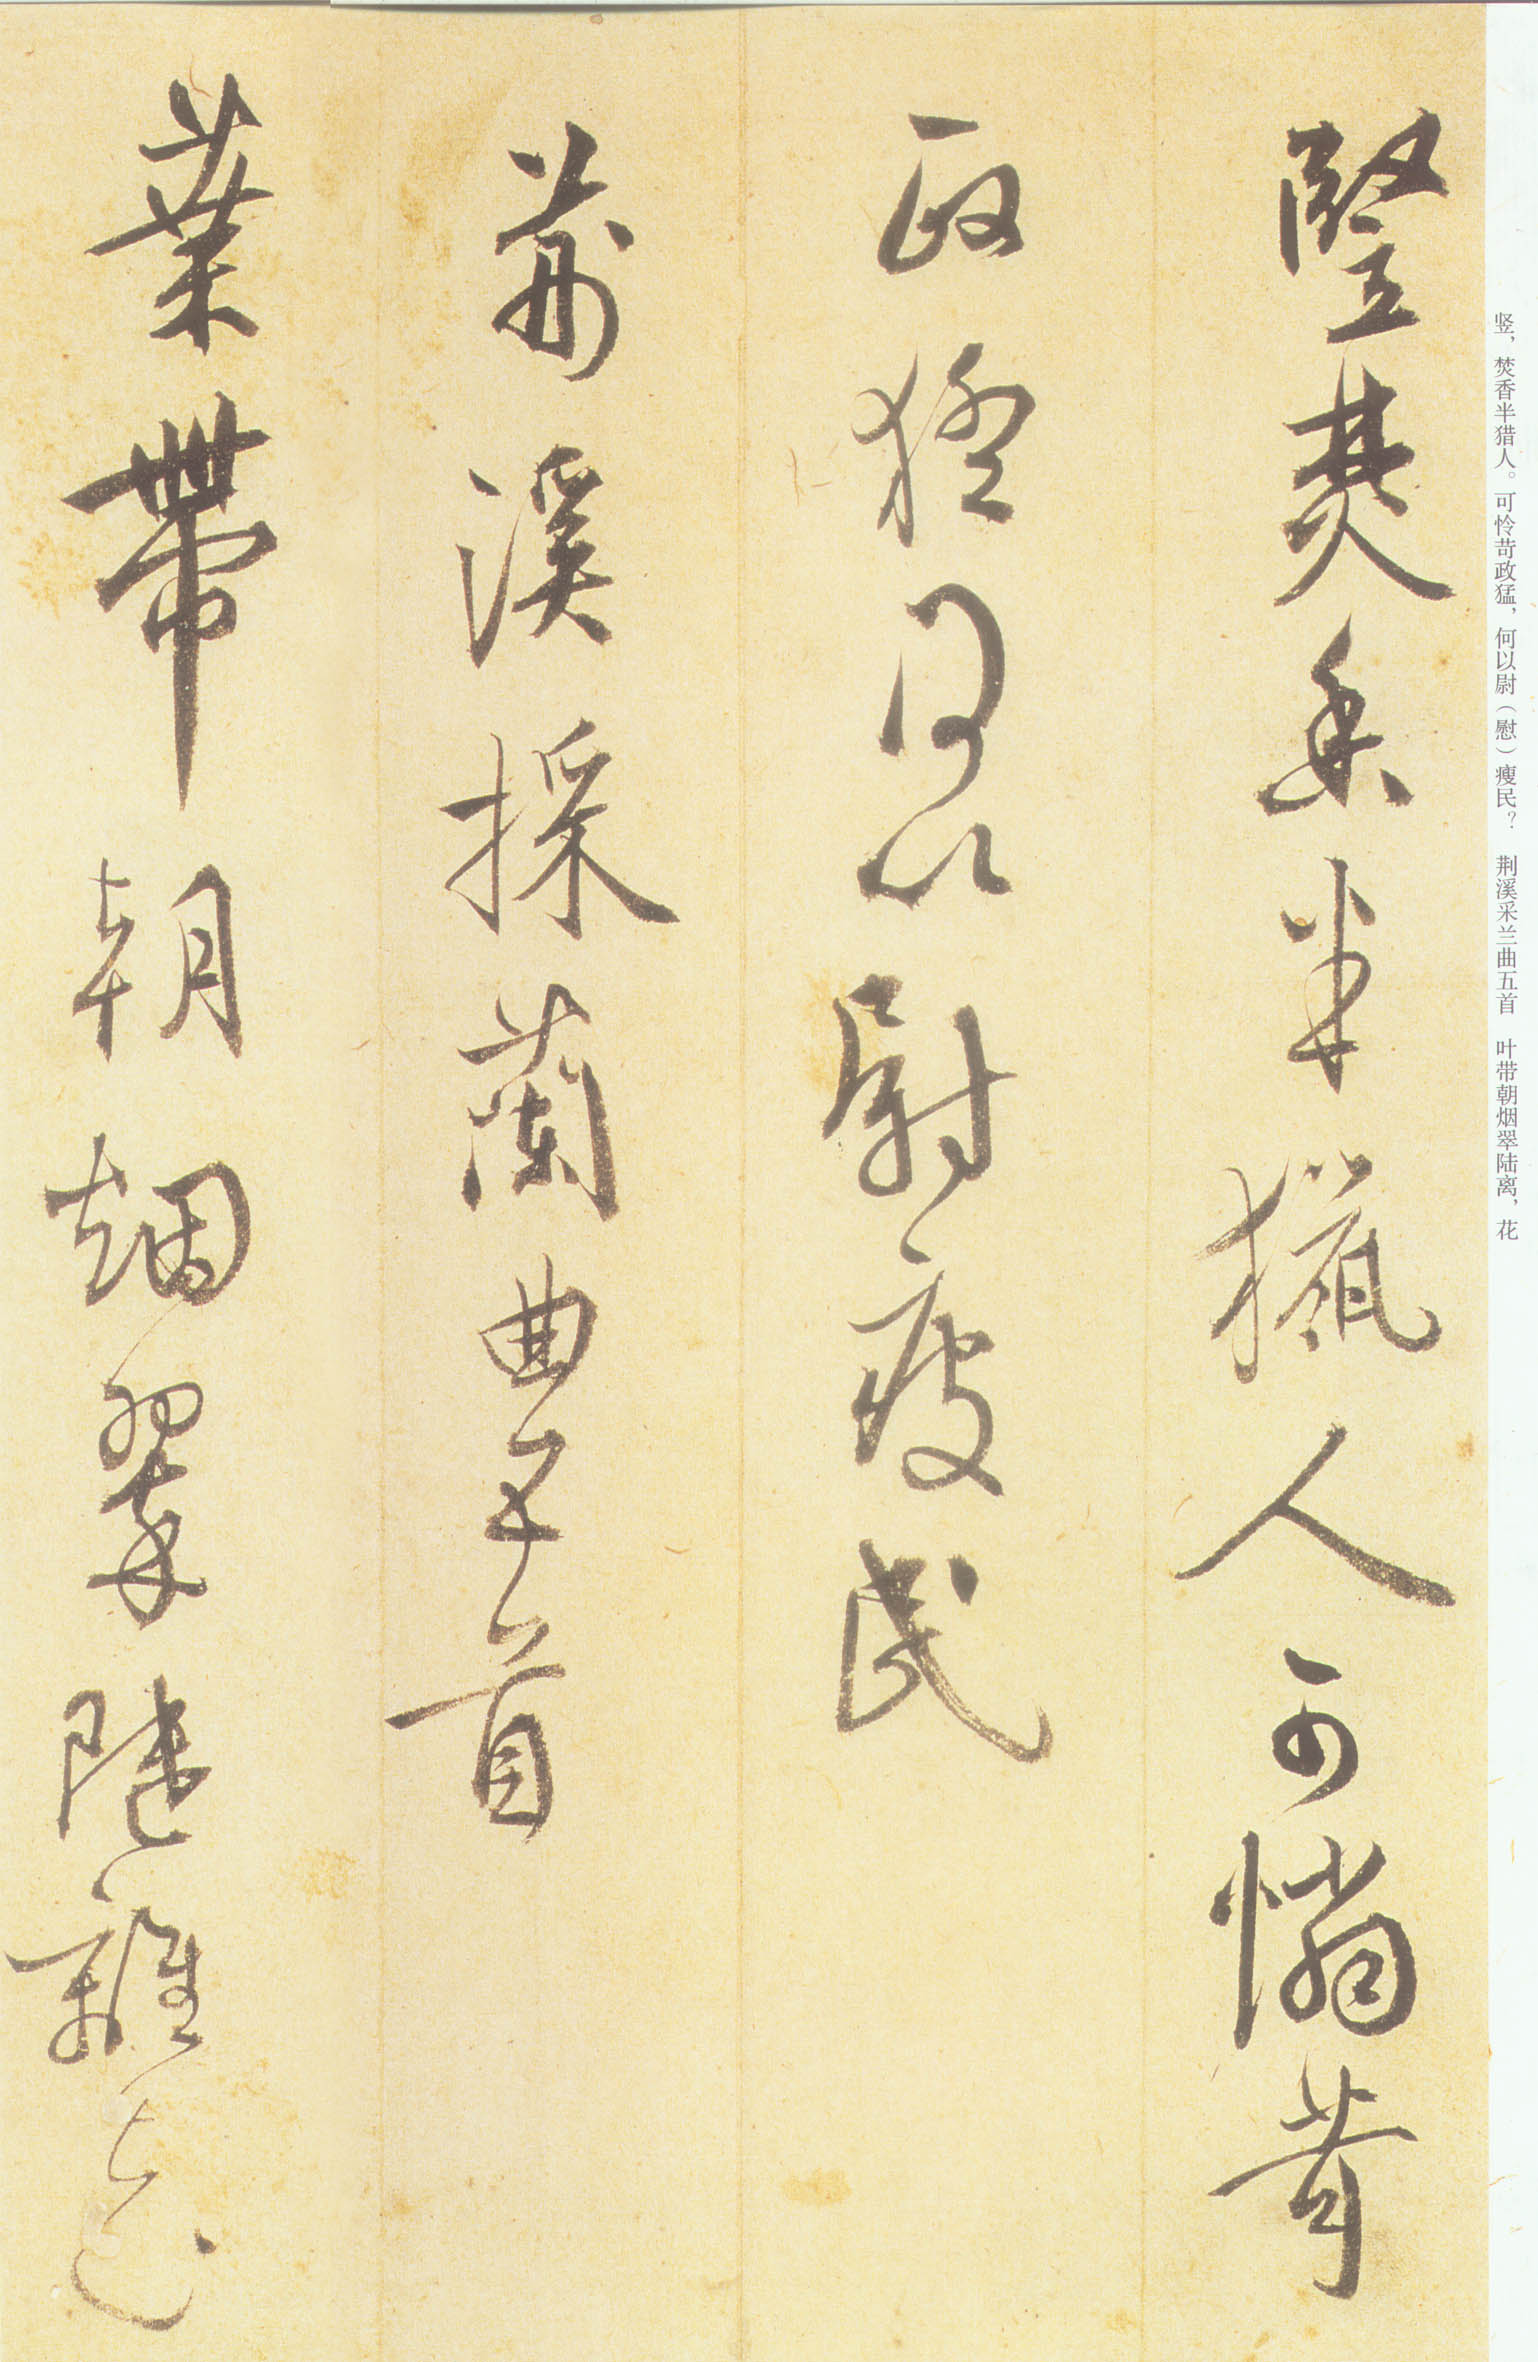 竖，焚香半猎人。可怜苛政猛，何以尉（慰）瘦民？　荆溪采兰曲五首　叶带朝烟翠陆离，花
豎焚香半獵人可憐苛
政猛何以尉瘦民
荊溪採蘭曲五首
葉帶朝烟翠陸離花